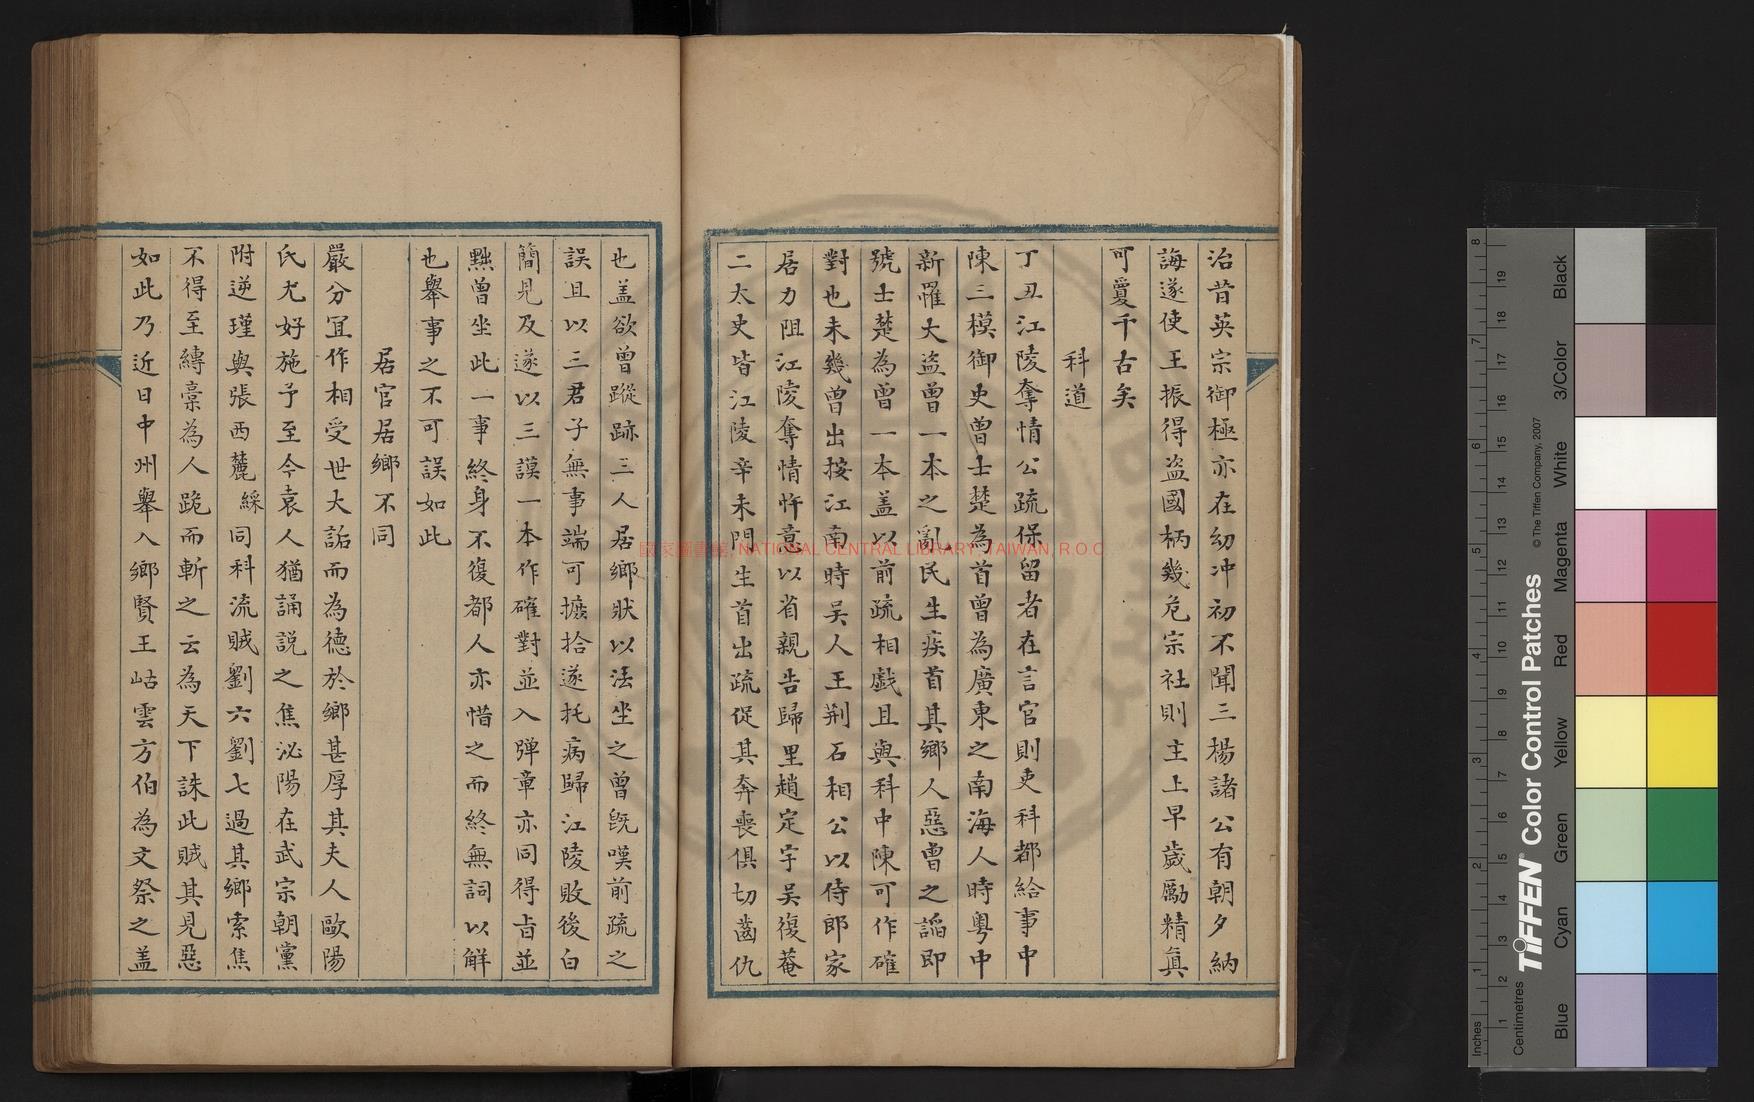 治昔英宗御極亦在幼冲初不聞三楊諸公有朝夕納
誨遂使王振得盗國柄幾危宗社則主上早歲勵精真
可夐千古矣
科道
丁丑江陵奪情公疏保留者在言官則吏科都給事中
陳三模御史曾士楚為首曾為廣東之南海人時粤中
新罹大盗曾一本之亂民生疾首其鄉人惡曾之謟即
號士楚為曾一本盖以前疏相戲且與科中陳可作確
對也未幾曾出按江南時吴人王荆石相公以侍郎家
居力阻江陵奪情忤意以省親告歸里趙定宇吴復菴
二太史皆江陵辛未門生首出疏促其奔喪俱切齒仇
也盖欲曾蹤跡三人居鄉狀以法坐之曾既嘆前疏之
誤且以三君子無事端可摭拾遂托病歸江陵敗後白
簡見及遂以三謨一本作確對並入彈章亦同得旨並
黜曾坐此一事終身不復都人亦惜之而終無詞以解
也舉事之不可誤如此
居官居鄉不同
嚴分宜作相受世大詬而為德於鄉甚厚其夫人歐陽
氏尤好施予至今袁人猶誦説之焦泌陽在武宗朝黨
附逆瑾與張西麓綵同科流賊劉六劉七過其鄉索焦
不得至縛藁為人跪而斬之云為天下誅此賊其見惡
如此乃近日中州舉入鄉賢王岵雲方伯為文祭之盖
國家圖書館, NATIONAL CENTRAL LIBRARY, TAIWAN, R.O.C
Inches
Centimetres
TIFFEN® Color Control Patches
© The Tiffen Company, 2007
Blue
Cyan
Green
Yellow
Red
Magenta
White
3/Color
Black